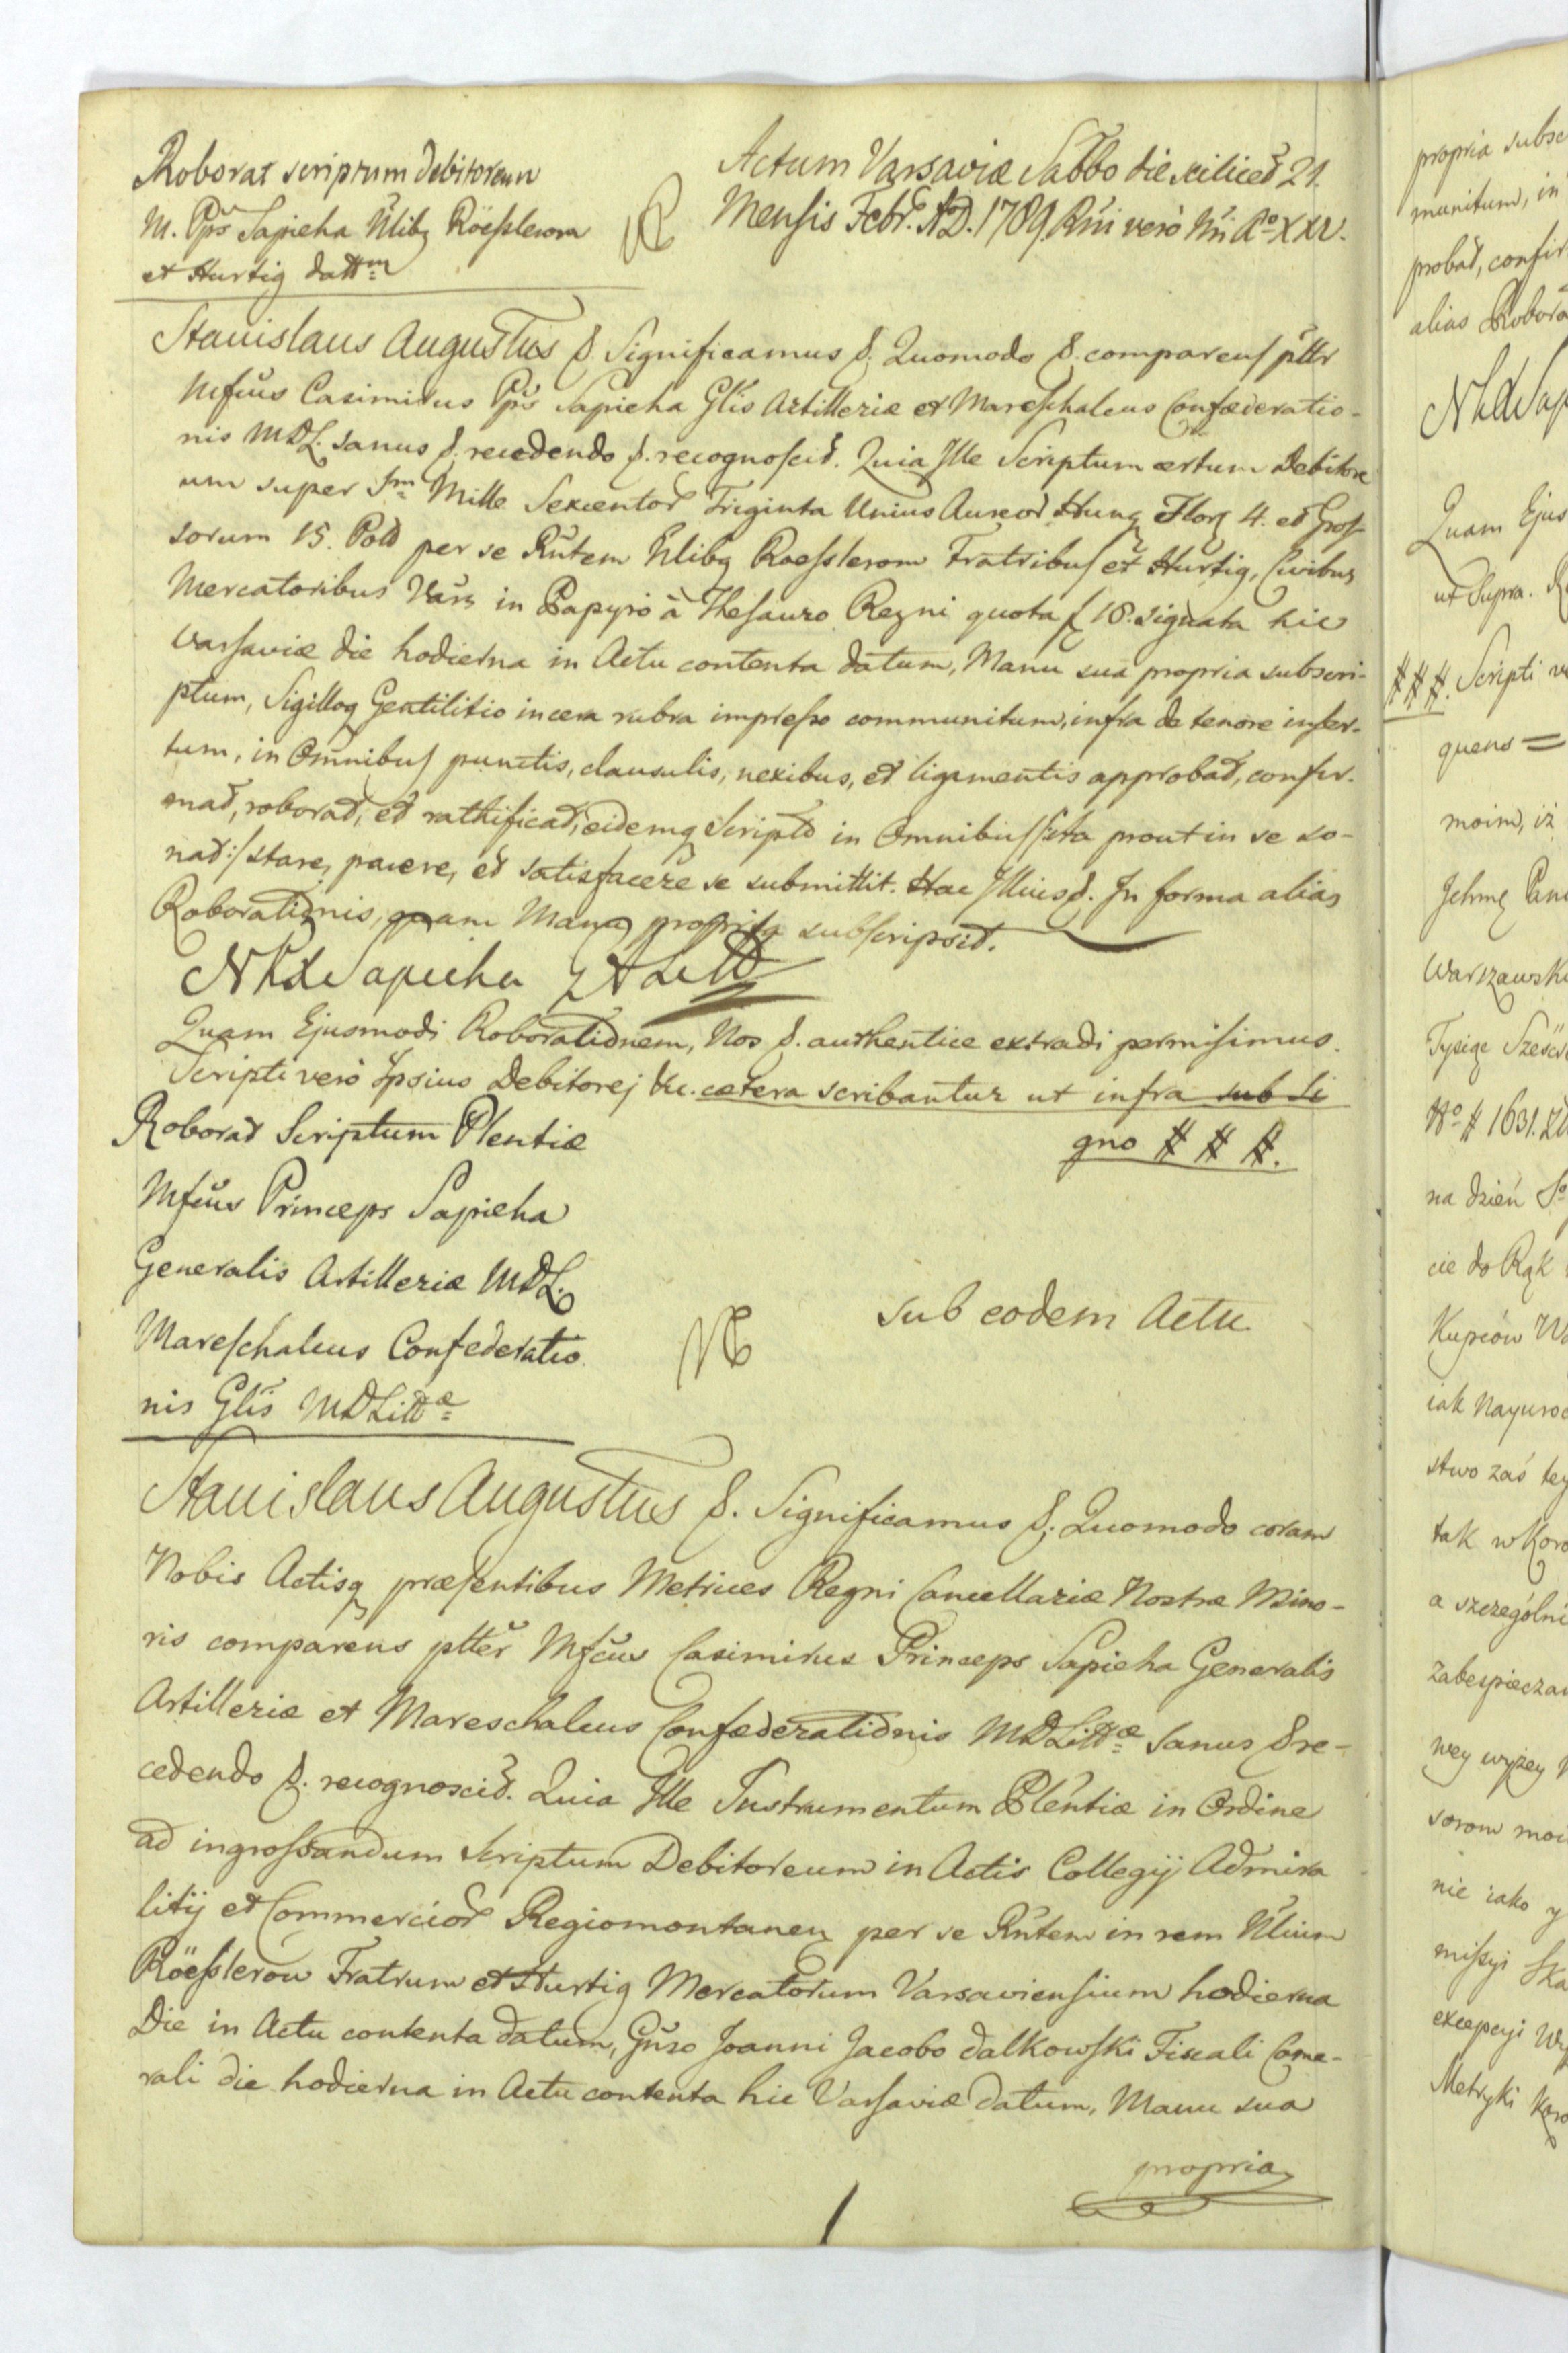 Roborat scriptum Debitoreum
M. Pps Sapieha Nlibq Röesslerom
et Hurtig dattm
Actum Varsaviæ Sabbo die scilicet 21.
Mensis Febr. A.D. 1789. Rni verò Nri Ao XXV.
Stanislaus Augustus &. Significamus &. Quomodo &. comparens ptter
Mfcus Casimirus Pps Sapieha Glis Artilleriæ et Mareschalcus Confæderatio-
nis MDL. sanus &. recedendo &. recognoscit. Quia Ille Scriptum certum Debitore
um super Sm Mille Sexcentor Triginta Unius Aureor Hung Flor 4. et Gros-
sorum 15. Pold per se Rntem Nlibq Roesslerom Fratribus et Hurtig, Civibus
Mercatoribus Vars in Papyro à Thesauro Regni quota f 18. signata hic
Varsaviæ die hodierna in Actu contenta datum, Manu sua propria subscri-
ptum, Sigilloq Gentilitio in cera rubra impresso communitum, infra de tenore inser-
tum, in Omnibus punctis, clausulis, nexibus, et ligamentis approbat, confir-
mat, roborat, et rathificat, eidemq Scripto in Omnibus /:ita prout in se so-
nat:/ stare, parere, et satisfacere se submittit. Hac Illius &. In forma alias
Roborationis, quam Manu propria subscripsit.
Sapieha
Quam Ejusmodi Roborationem, Nos &. authentice extradi permisimus.
Scripti verò Ipsius Debitorej &c. cætera scribantur ut infra sub Si
gno # # #.
Roborat Scriptum Plentiæ
Mfcus Princeps Sapieha
Generalis Artilleriæ MDL.
Mareschalcus Confederatio
nis Glis MDLittæ
Sub eodem Actu
Stanislaus Augustus &. Significamus &. Quomodo coram
Nobis Actisq præsentibus Metrices Regni Cancellariæ Nostræ Mino-
ris comparens ptter Mfcus Casimirus Princeps Sapieha Generalis
Artilleriæ et Mareschalcus Confæderationis MDLittæ Sanus & re-
cedendo &. recognoscit. Quia Ille Instrumentum Plentiæ in Ordine
ad ingrossandum Scriptum Debitoreum in Actis Collegij Admira
litij et Commercior Regiomontanen per se Rntem in rem Nlium
Röesslerow Fratrum et Hurtig Mercatorum Varsaviensium hodierna
Die in Actu contenta datum, Gnso Joanni Jacobo Dalkowski Fiscali Came-
rali die hodierna in Actu contenta hic Varsaviæ datum, Manu sua
propria
propria subsc
munitum, in
probat, confir
alias Robora
Quam Ejus
ut Supra.
# # #. Scripti ve
quens =
moim, iż
Jchmę Pan
Warszawski
Tysięc Sześćse
No # 1631.
na dzień
cie do Rąk
Kupców Wa
iak Nayuroc
stwo zaś tey
tak w Koro
a szczególni
zabespieczan
wey wyżey
sorom moi
nie iako y
missyi Ska
excepcyi Wy
Metryki Koro